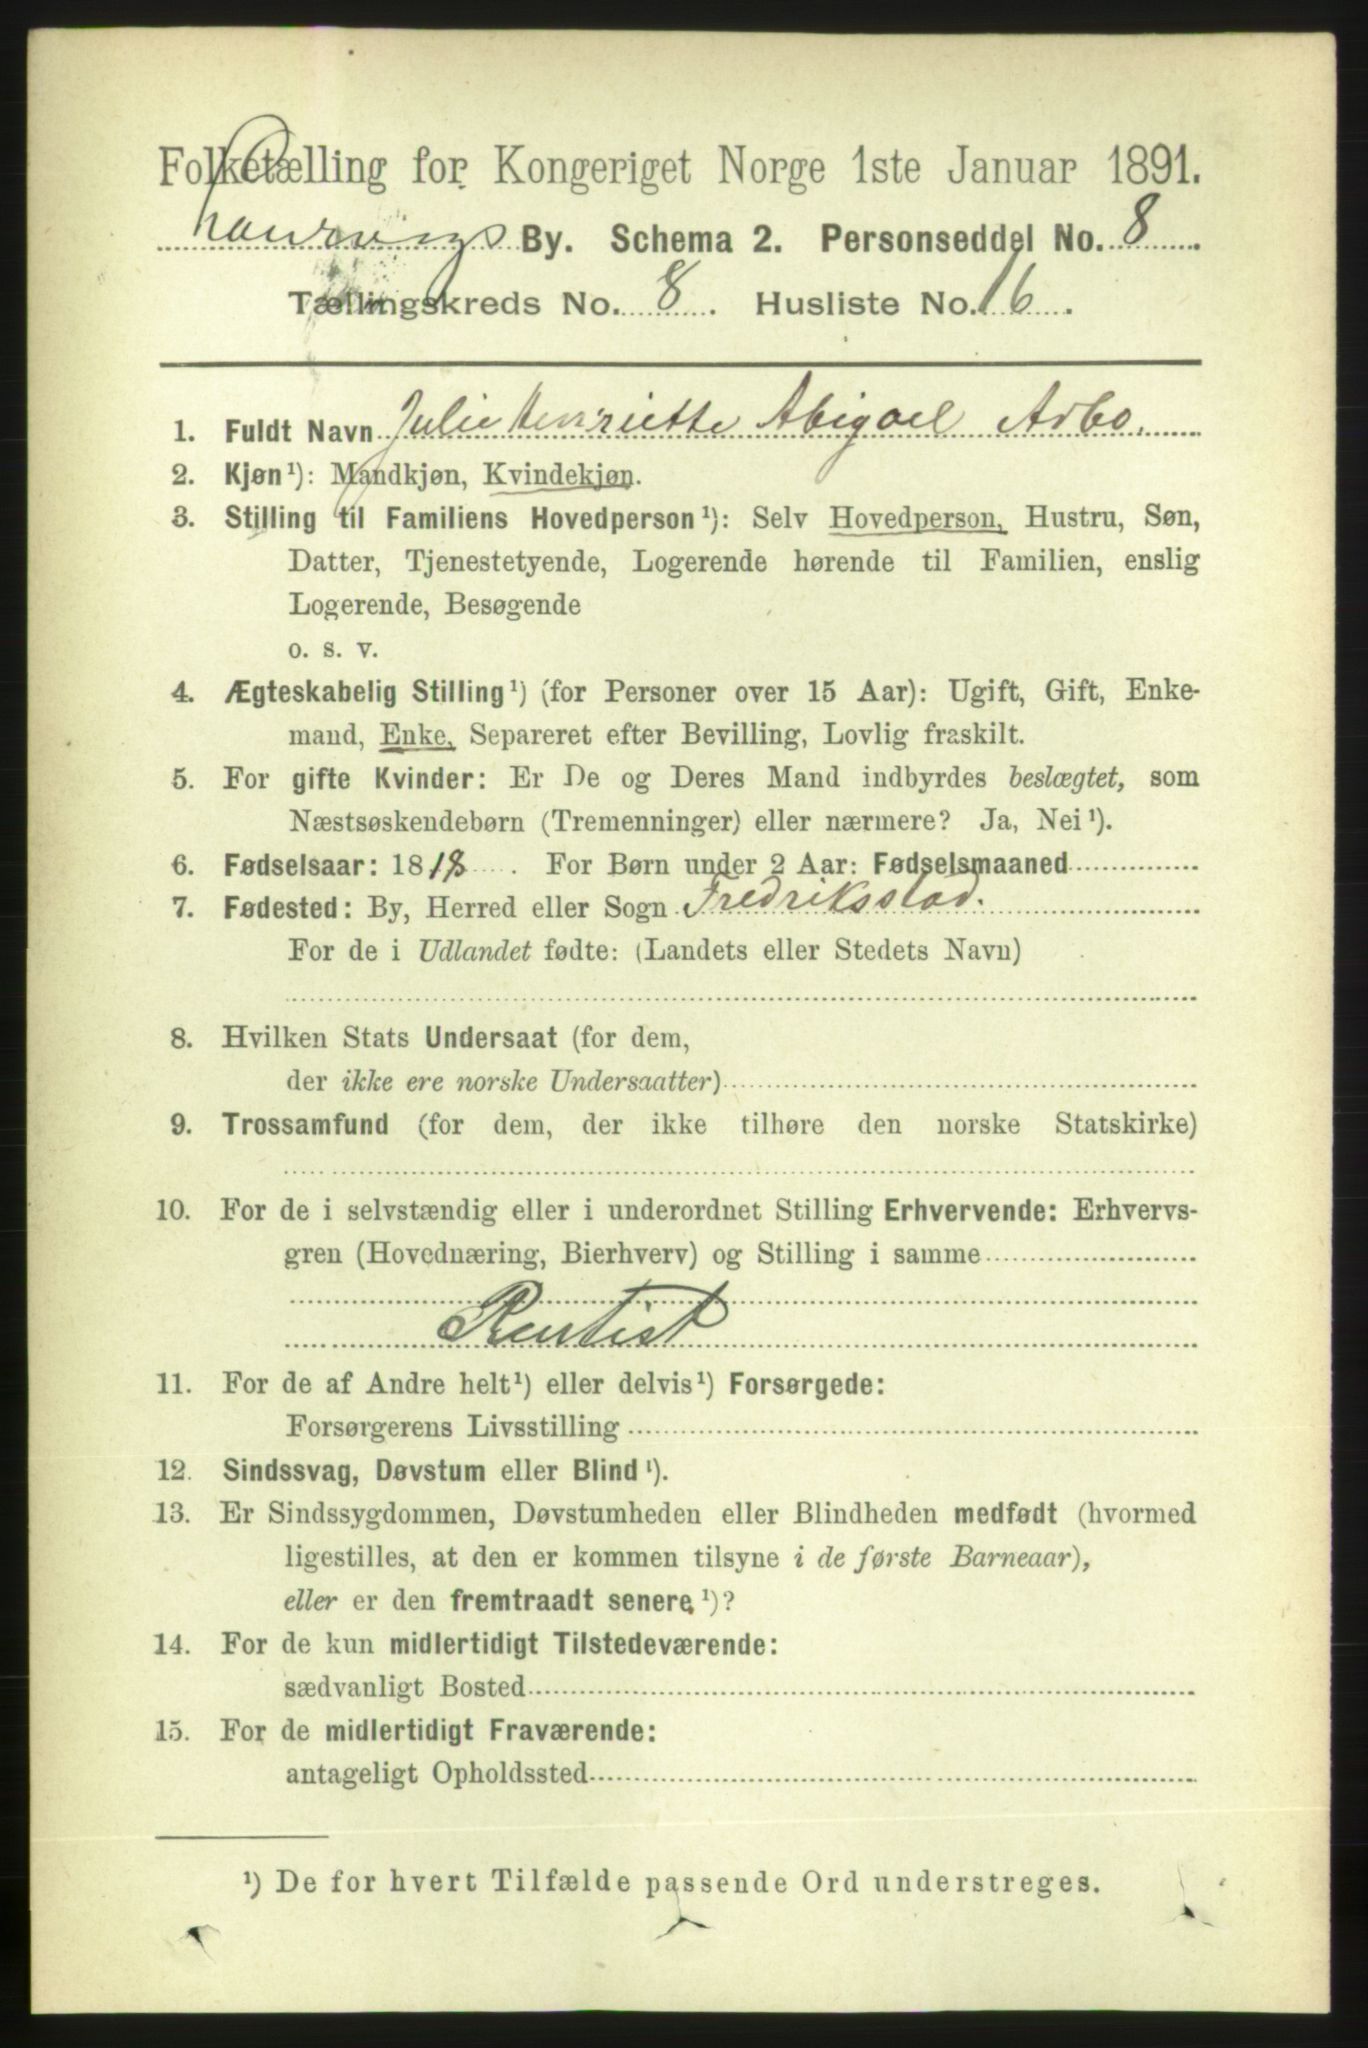 Folketælling for Kongeriget Norge 1ste Januar 1891.
Laurvigs By. Schema 2. Personseddel No. 8.
Tællingskreds No. 8. Husliste No. 16.
1. Fuldt Navn Julie Henriette Abigael Arbo.
2. Kjøn ¹): Mandkjøn, Kvindekjøn.
3. Stilling til Familiens Hovedperson ¹): Selv Hovedperson, Hustru, Søn,
Datter, Tjenestetyende, Logerende hørende til Familien, enslig
Logerende, Besøgende
o. s. v.
4. Ægteskabelig Stilling ¹) (for Personer over 15 Aar): Ugift, Gift, Enke-
mand, Enke, Separeret efter Bevilling, Lovlig fraskilt.
5. For gifte Kvinder: Er De og Deres Mand indbyrdes beslægtet, som
Næstsøskendebørn (Tremenninger) eller nærmere? Ja, Nei ¹).
6. Fødselsaar: 1818. For Børn under 2 Aar: Fødselsmaaned
7. Fødested: By, Herred eller Sogn Fredriksstad.
For de i Udlandet fødte: (Landets eller Stedets Navn)
8. Hvilken Stats Undersaat (for dem,
der ikke ere norske Undersaatter)
9. Trossamfund (for dem, der ikke tilhøre den norske Statskirke)
10. For de i selvstændig eller i underordnet Stilling Erhvervende: Erhvervs-
gren (Hovednæring, Bierhverv) og Stilling i samme
Rentist
11. For de af Andre helt ¹) eller delvis ¹) Forsørgede:
Forsørgerens Livsstilling
12. Sindssvag, Døvstum eller Blind ¹).
13. Er Sindssygdommen, Døvstumheden eller Blindheden medfødt (hvormed
ligestilles, at den er kommen tilsyne i de første Barneaar),
eller er den fremtraadt senere ¹)?
14. For de kun midlertidigt Tilstedeværende:
sædvanligt Bosted
15. For de midlertidigt Fraværende:
antageligt Opholdssted
¹) De for hvert Tilfælde passende Ord understreges.